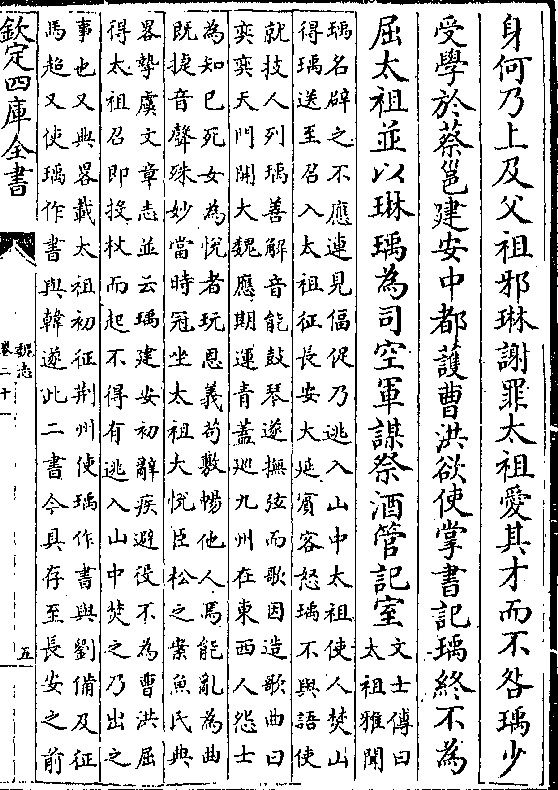 身何乃上及父祖邪琳謝罪太祖愛其才而不咎瑀少
受學於蔡邕建安中都護曹洪欲使掌書記瑀終不為
屈太祖並以琳瑀為司空軍謀祭酒管記室
文士傅曰
太祖雅聞
瑀名辟之不應連見偪促乃逃入山中太祖使人焚山
得瑀送至召入太祖征長安大延賓客怒瑀不與語使
就技人列瑀善解音能鼓琴遂撫弦而歌因造歌曲曰
奕奕天門開大魏應期運青蓋巡九州在東西人怨士
為知已死女為恱者玩恩義苟敷暢他人焉能亂為曲
既捷音聲殊妙當時冠坐太祖大恱臣松之案魚氏典
畧摯虞文章志並云瑀建安初辭疾避役不為曹洪屈
得太祖召即投杖而起不得有逃入山中焚之乃出之
事也又典畧載太祖初征荆州使瑀作書與劉備及征
馬超又使瑀作書與韓遂此二書今具存至長安之前
欽定四庫全書
魏志
卷二十一
五